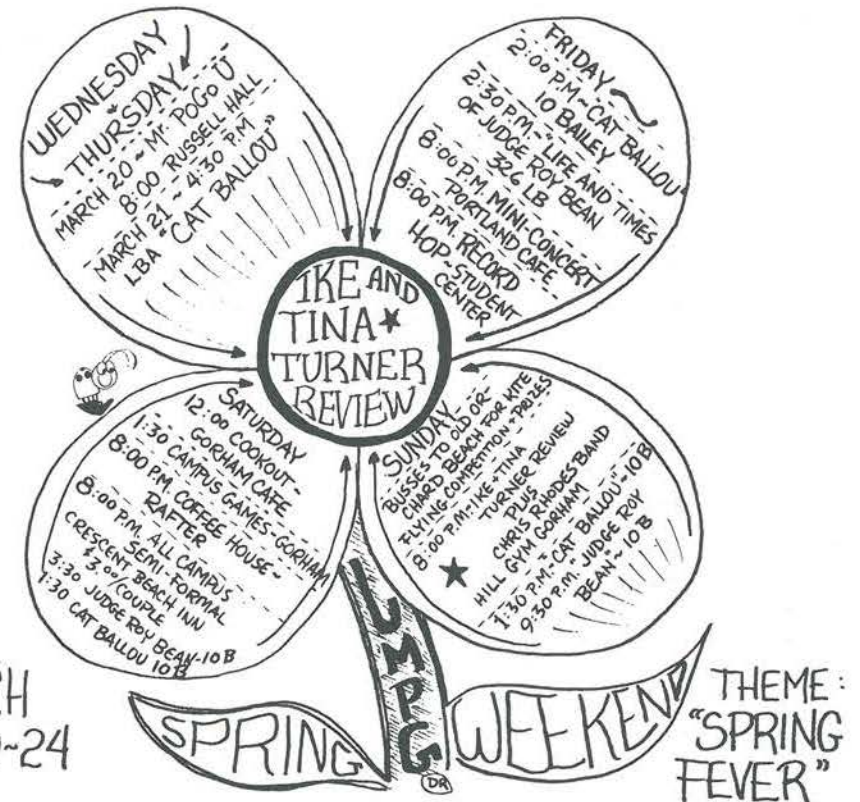 WEDNESDAY
THURSDAY
MARCH 20 ~ Mr. PoGo U
8:00 RUSSELL HALL
MARCH 21 ~ 4:30 P.M
LBA "CAT BALLOU"
FRIDAY ~
2:00 PM ~ "CAT BALLOU"
10 BAILEY
2:30 P.M. - "LIFE AND TIMES
OF JUDGE ROY BEAN
326 LB
8:00 P.M. MINI-CONCERT
PORTLAND CAFE
8:00 P.M. RECORD
HOP ~ STUDENT
CENTER
IKE AND
TINA ★
TURNER
REVIEW
SATURDAY
12:00 COOKOUT -
GORHAM CAFE
1:30 CAMPUS GAMES - GORHAM
8:00 P.M. COFFEE HOUSE ~
RAFTER
8:00 P.M. ALL CAMPUS
SEMI-FORMAL
CRESCENT BEACH INN
$3.00/COUPLE
3:30 JUDGE ROY BEAN - 10 B
1:30 CAT BALLOU 10 B
SUNDAY
BUSSES TO OLD OR-
CHARD BEACH FOR KITE
FLYING COMPETITION + PRIZES
8:00 P.M. - IKE + TINA
TURNER REVIEW
PLUS
CHRIS RHODES BAND
HILL GYM GORHAM
1:30 P.M. - "CAT BALLOU" ~ 10 B
9:30 P.M. "JUDGE ROY
BEAN" ~ 10 B
UMPG
DR
SPRING WEEKEND
~24
THEME:
"SPRING
FEVER"